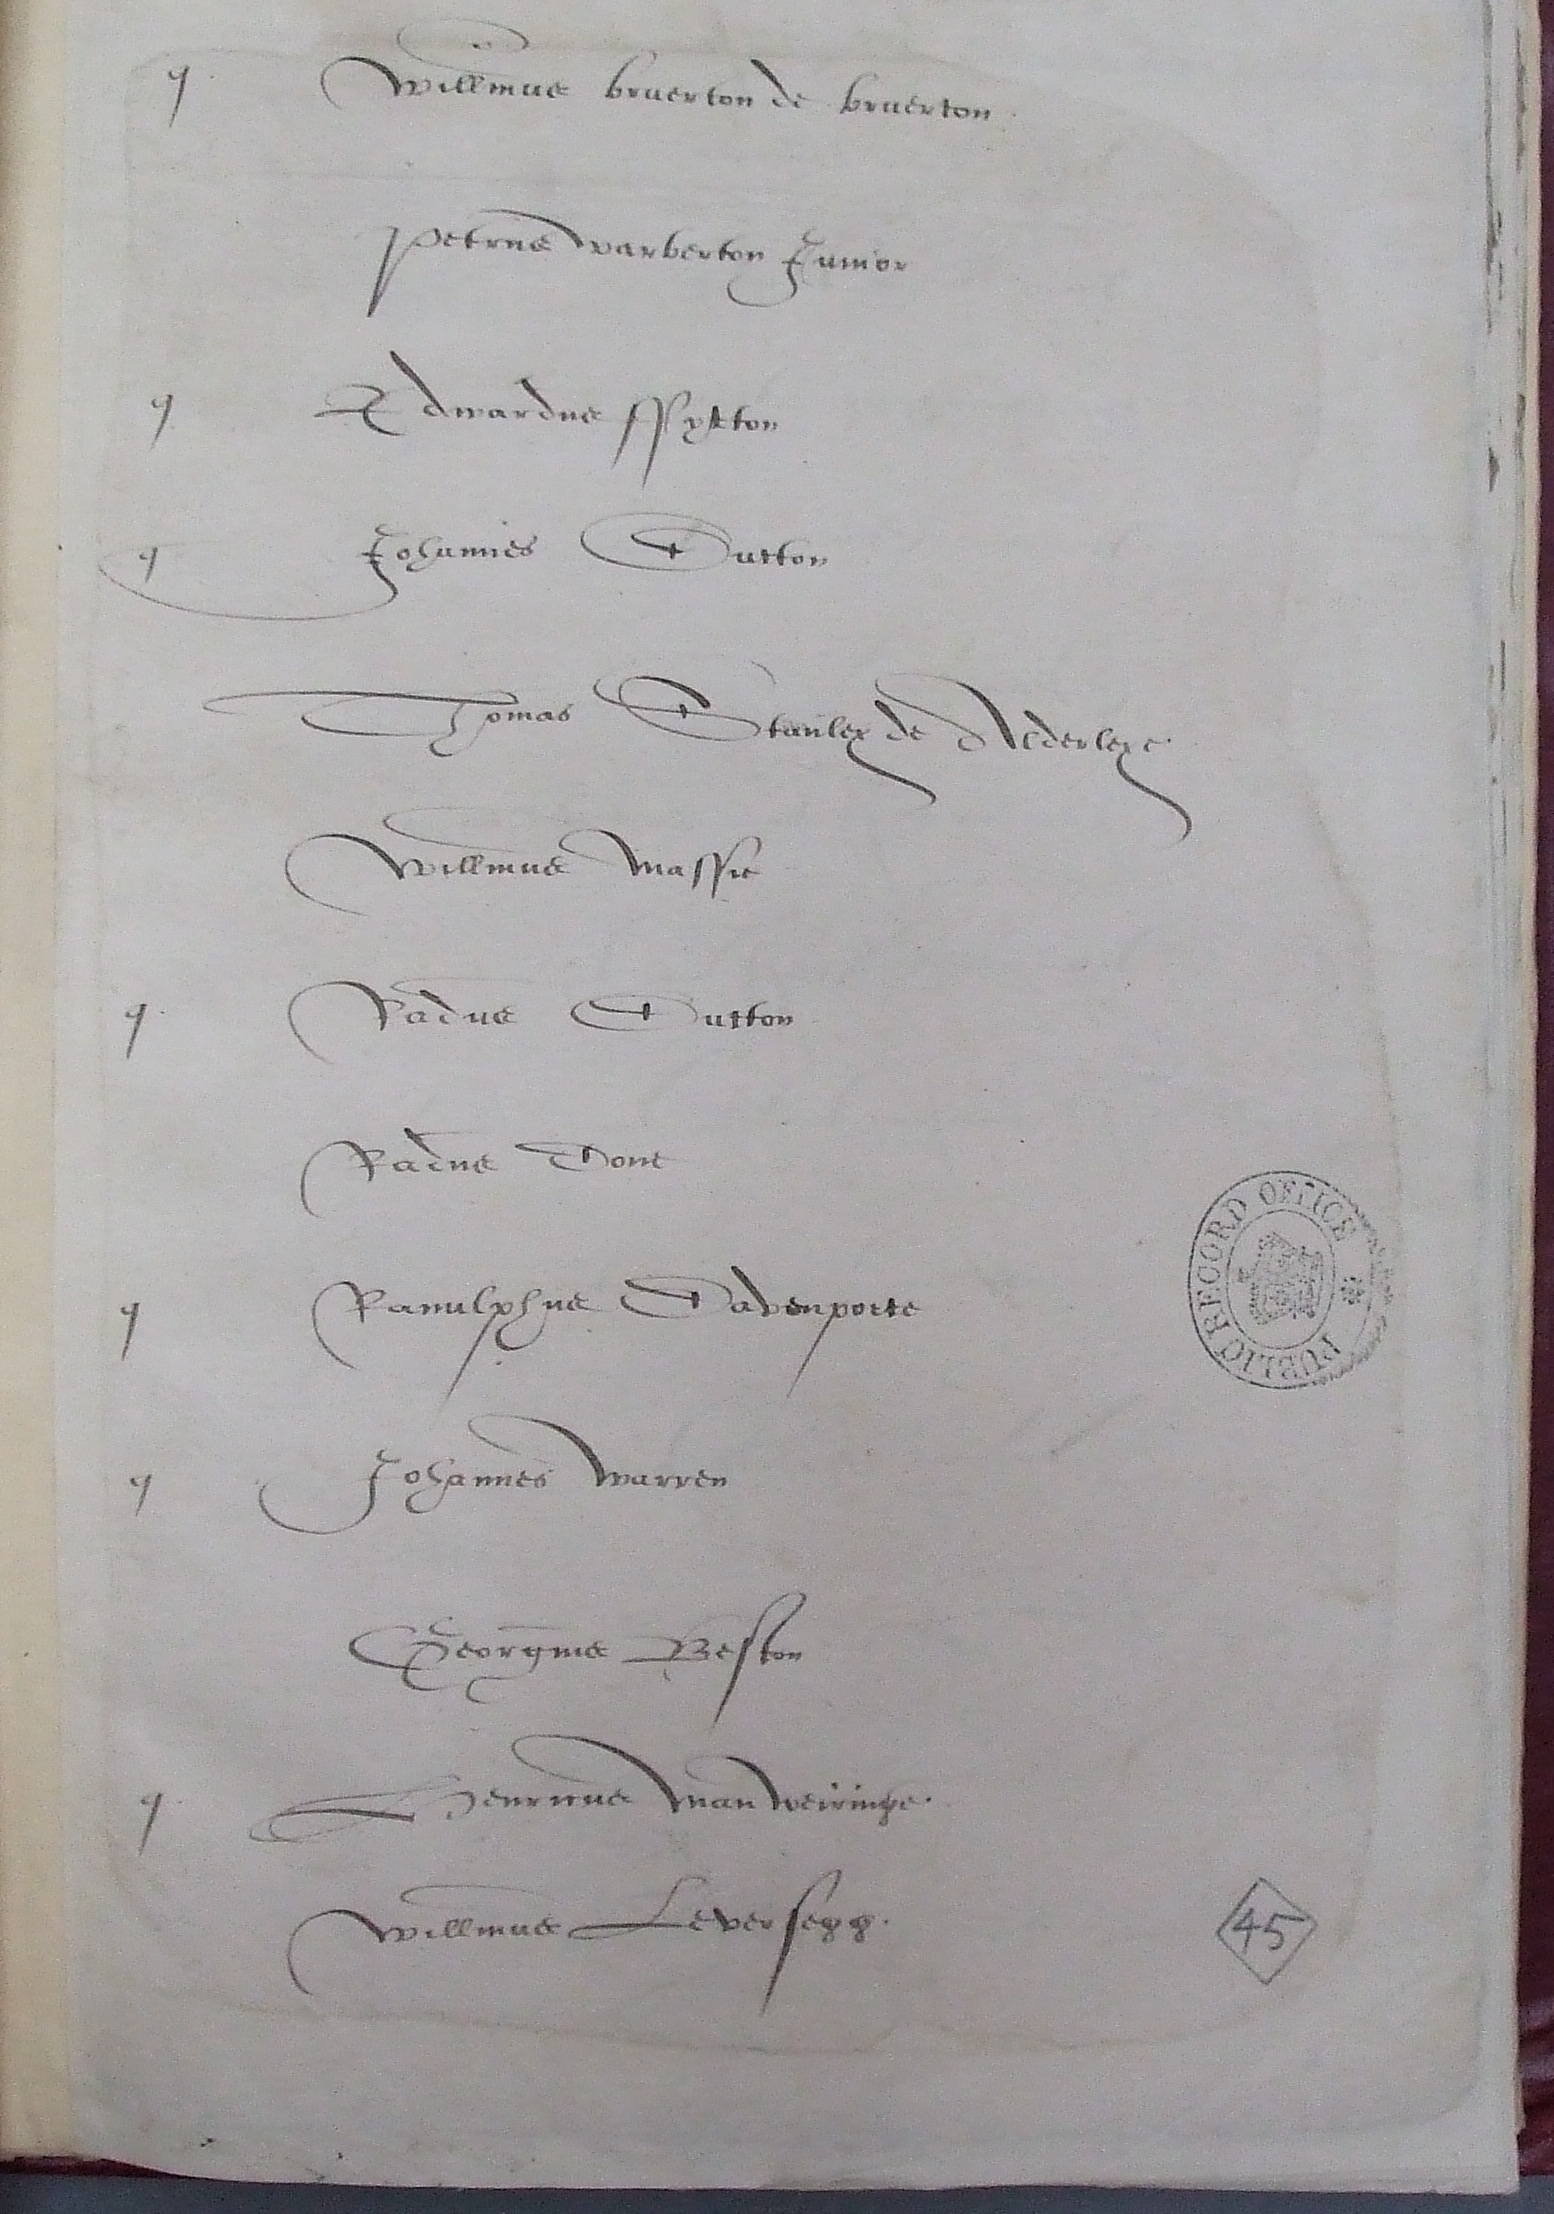 q Willmus bruerton de bruerton
Petrus warberton Junior
q Edwardus ffytton
q Johannes Dutton
Thomas Stanley de Alderleye
Willmus Massie
q Radus Dutton
Radus Done
q Ranulphus Davenporte
q Johannes Warren
PUBLIC RECORD OFFICE
Georgius Beston
q Henricus Manweiringe
Willmus Leversegg
45